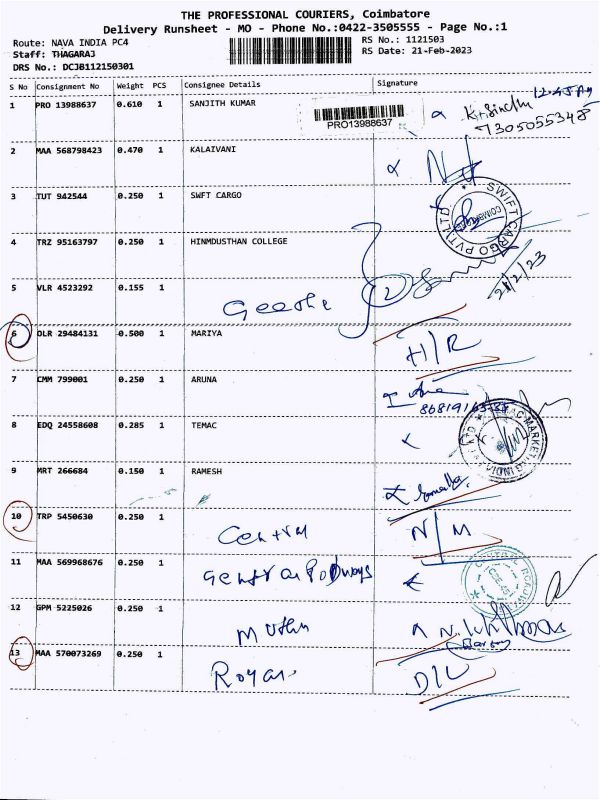 THE PROFESSIONAL COURIERS, Coimbatore
Delivery Runsheet - MO - Phone No.:0422-3505555 - Page No.:1
Route: NAVA INDIA PC4
RS No.: 1121503
Staff: THAGARAJ
RS Date: 21-Feb-2023
DRS No.: DCJB112150301
S No Consignment No Weight PCS Consignee Details Signature
12.45 PM
1 PRO 13988637 0.610 1 SANJITH KUMAR
PRO13988637
7305055348
2 MAA 568798423 0.470 1 KALAIVANI
3 TUT 942544 0.250 1 SWFT CARGO
SWIFT CARGO PVT LTD
4 TRZ 95163797 0.250 1 HINMDUSTHAN COLLEGE
2
21/2/23
5 VLR 4523292 0.155 1 Geetha
6 OLR 29484131 0.500 1 MARIYA H/R
7 CMM 799001 0.250 1 ARUNA
8 EDQ 24558608 0.285 1 TEMAC
9 MRT 266684 0.150 1 RAMESH
10 TRP 5450630 0.250 1 Central N/M
11 MAA 569968676 0.250 1
12 GPM 5225026 0.250 1 Muthu
13 MAA 570073269 0.250 1 Royar D/L